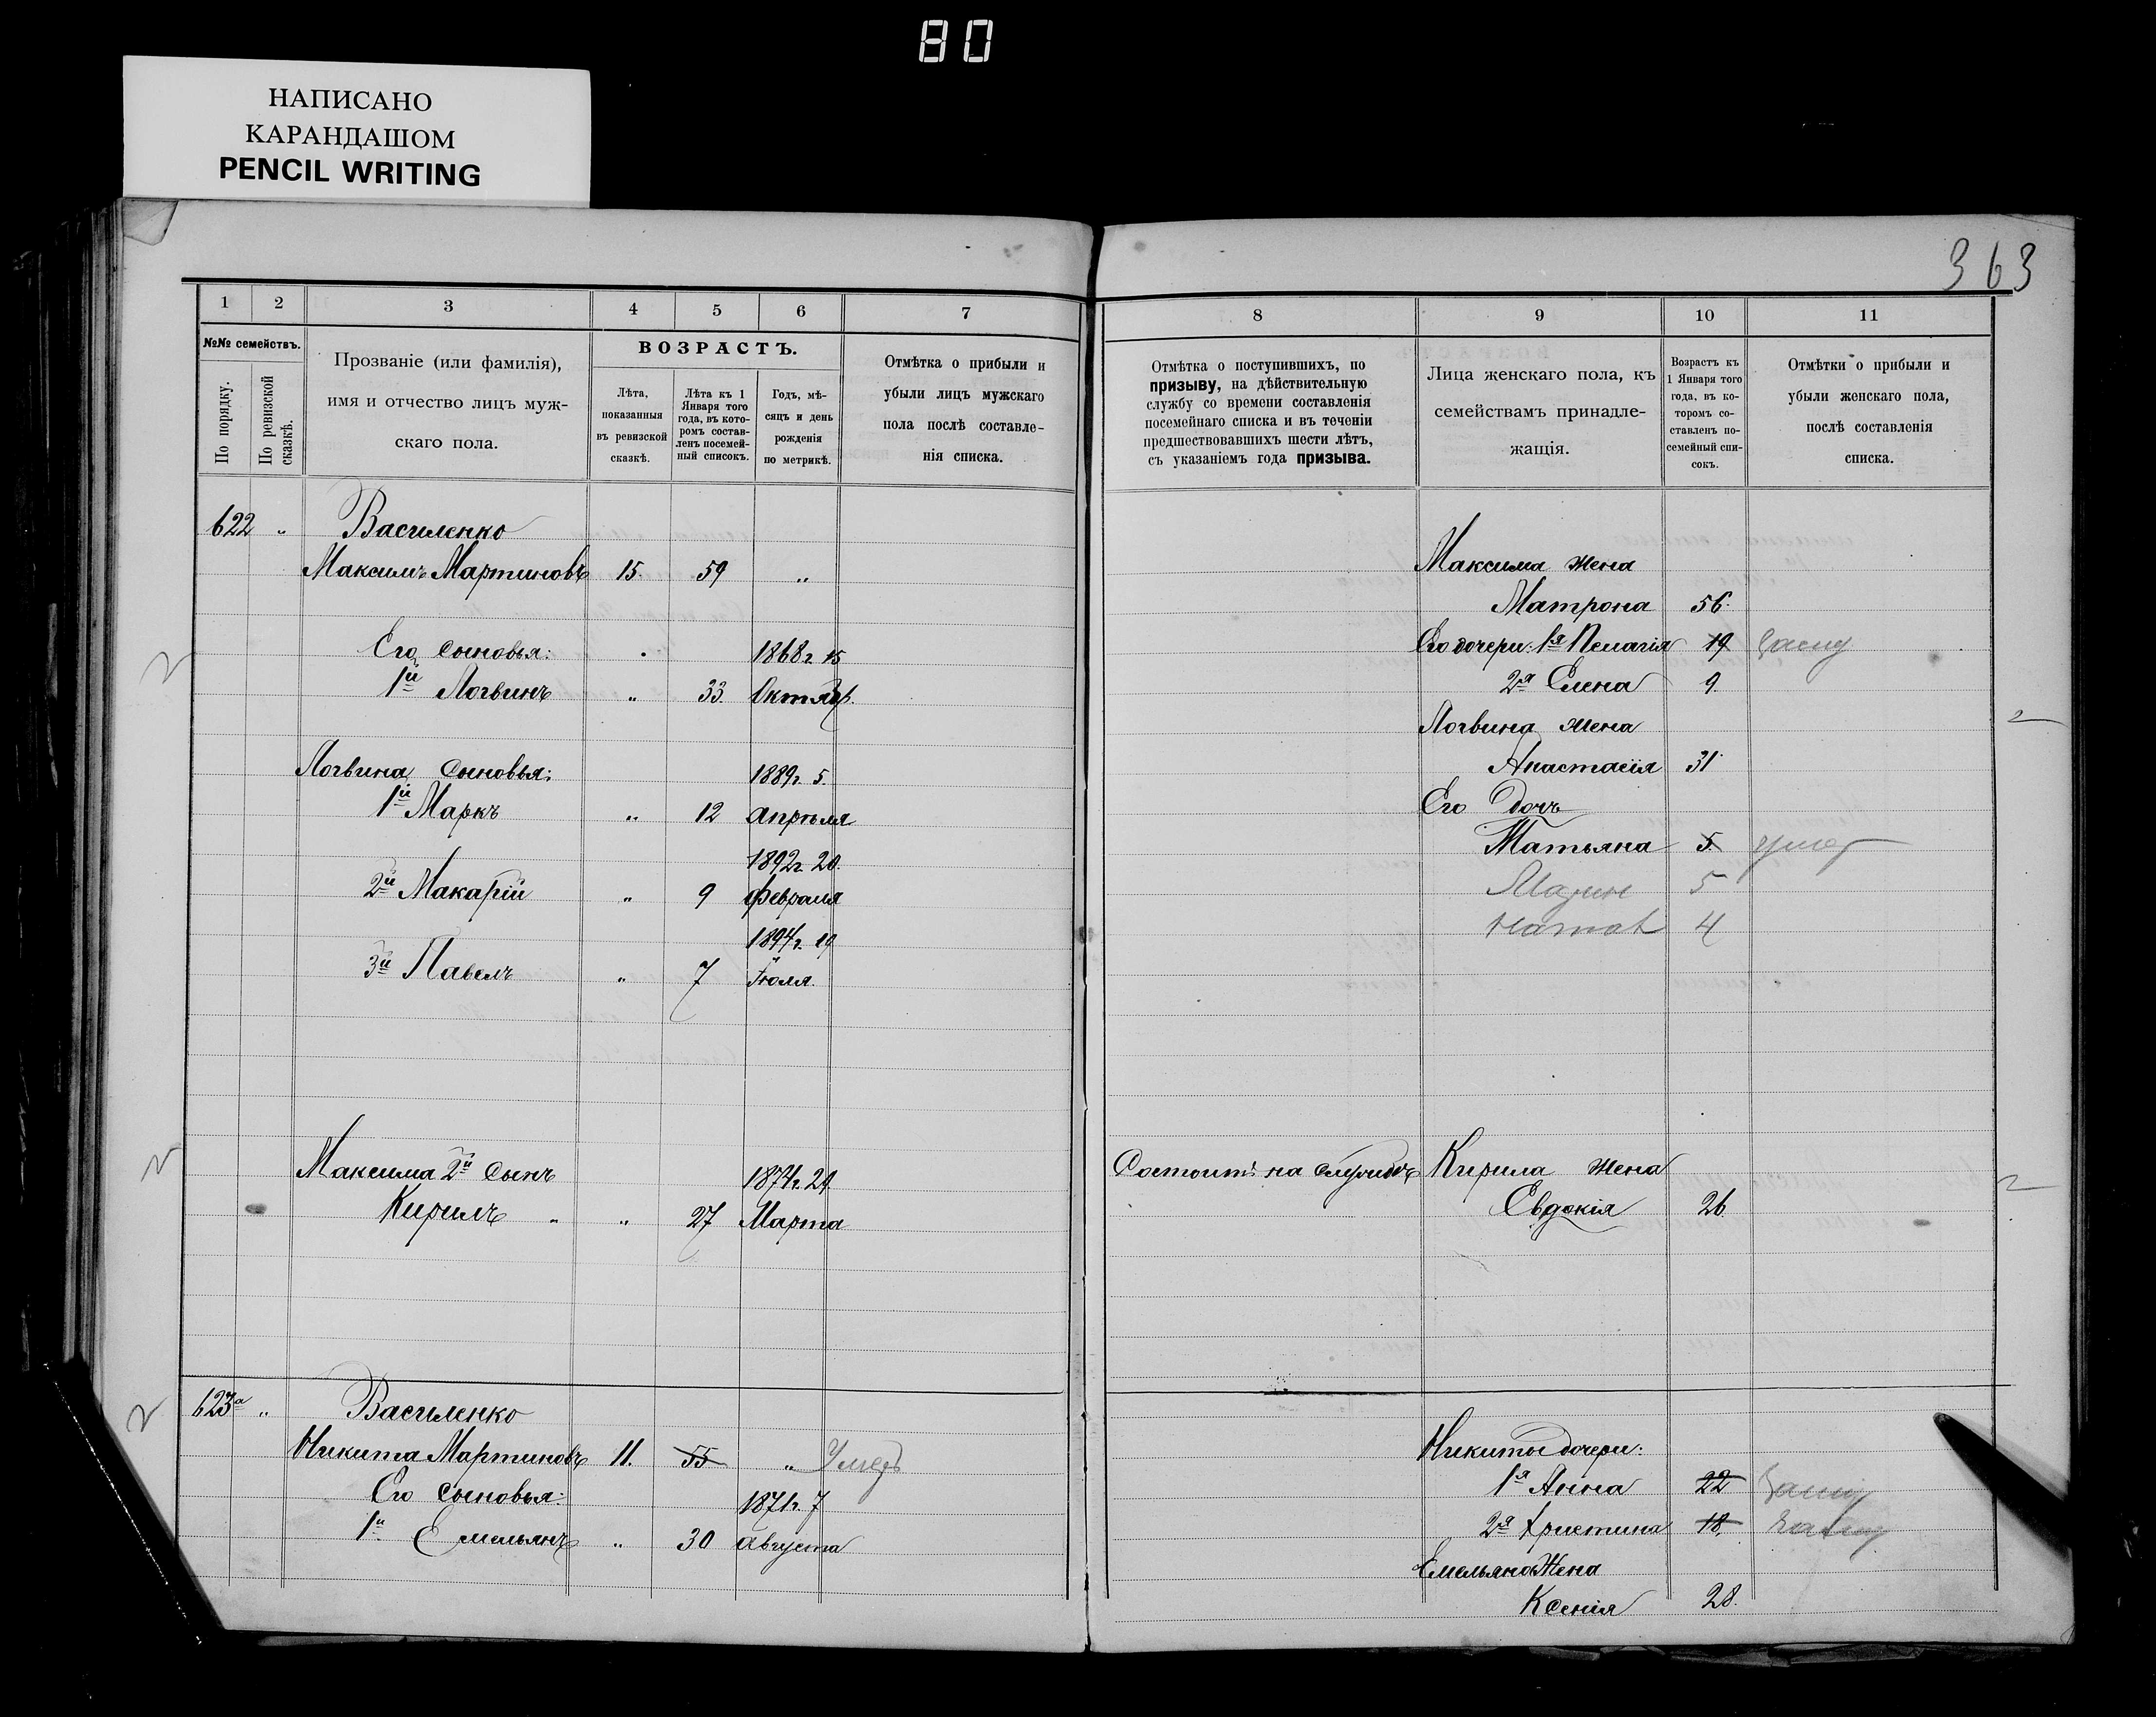 80
НАПИСАНО
КАРАНДАШОМ
PENCIL WRITING
363
1 2 3 4 5 6 7
№№ семействъ.
По порядку.
По ревизской сказкѣ.
Прозваніе (или фамилія),
имя и отчество лицъ муж-
скаго пола.
ВОЗРАСТЪ.
Лѣта,
показанныя
въ ревизской
сказкѣ.
Лѣта къ 1
Января того
года, въ кото-
ромъ состав-
ленъ посемей-
ный списокъ.
Годъ, мѣ-
сяцъ и день
рожденія
по метрикѣ.
Отмѣтка о прибыли и
убыли лицъ мужскаго
пола послѣ составле-
нія списка.
622 " Василенко
Максимъ Мартиновъ 15. 59 "
Его сыновья: 1868 г. 15
1й Логвинъ " 33. Октябр.
Логвина сыновья: 1889 г. 5.
1й Маркъ " 12 Апрѣля
1892 г. 20.
2й Макарій " 9 Февраля
1894 г. 19
3й Павелъ " 7 Іюля.
Максима 2й сынъ 1874 г. 24
Кирилъ " " 27 Марта
623а " Василенко
Никита Мартиновъ 11. 55 " Умеръ
Его сыновья: 1871 г. 7
1й Емельянъ " 30 Августа
8 9 10 11
Отмѣтка о поступившихъ, по
призыву, на дѣйствительную
службу со времени составленія
посемейнаго списка и въ теченіи
предшествовавшихъ шести лѣтъ,
съ указаніемъ года призыва.
Лица женскаго пола, къ
семействамъ принадле-
жащія.
Возрастъ къ
1 Января того
года, въ ко-
торомъ со-
ставленъ по-
семейный спи-
сокъ.
Отмѣтки о прибыли и
убыли женскаго пола,
послѣ составленія
списка.
Максима жена
Матрона 56.
Его дочери: 1я Пелагія 19
2я Елена 9.
Логвина жена
Анастасія 31
Его дочь
Татьяна 5.
5
4
Состоитъ на службѣ Кирила жена
Евдокія 26.
Никиты дочери:
1я Анна 22
2я Христина 18.
Емельяна жена
Ксенія 28.